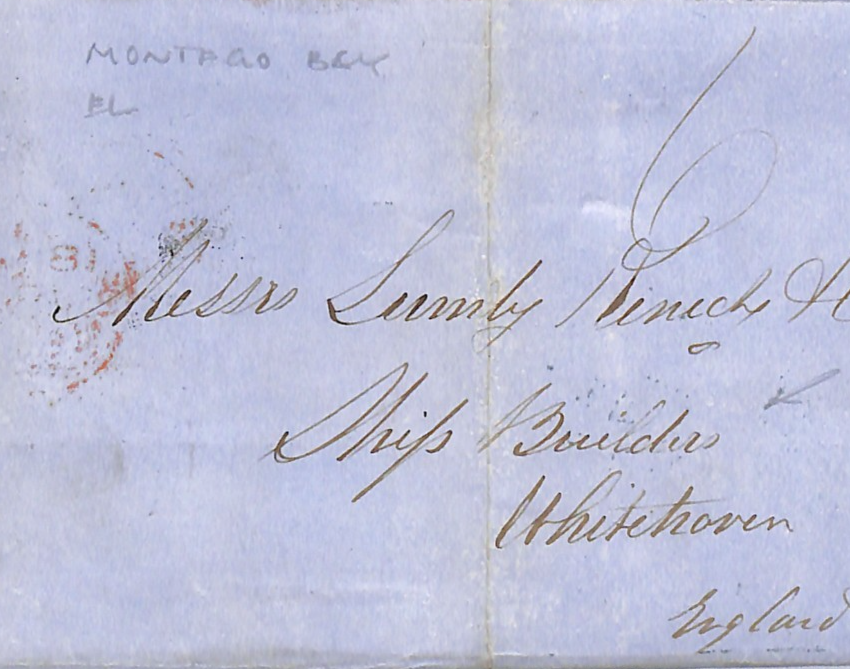 MONTEGO BAY
EL
6
Messrs Lumly Kenedy &
Ship Builders
Whitehaven
England